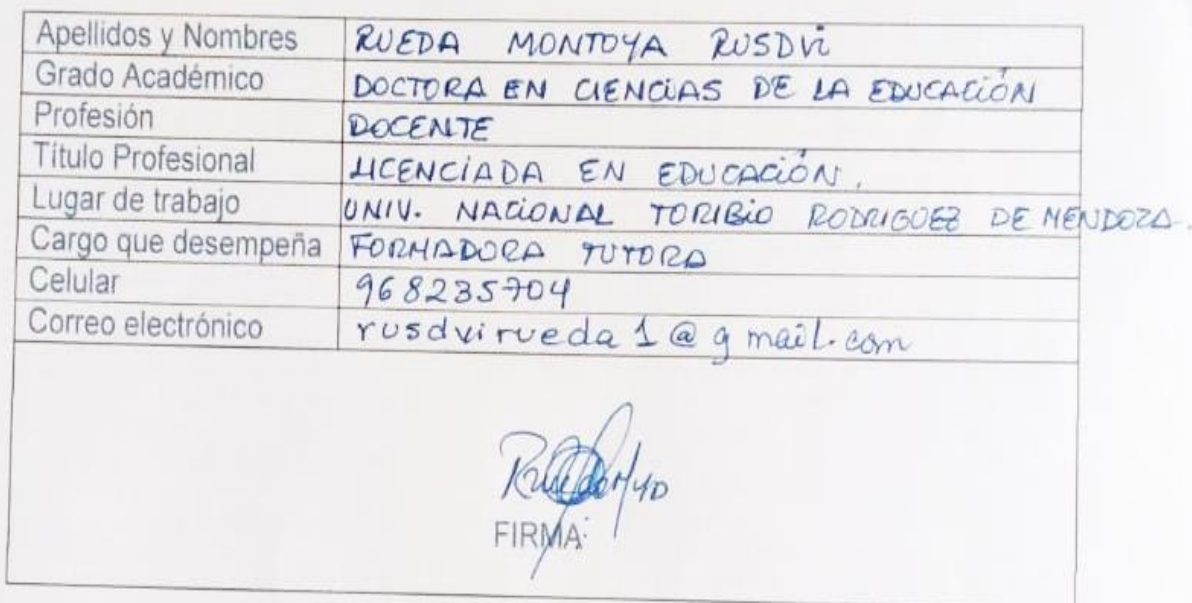 Apellidos y Nombres RUEDA MONTOYA RUSDVI
Grado Académico DOCTORA EN CIENCIAS DE LA EDUCACIÓN
Profesión DOCENTE
Título Profesional LICENCIADA EN EDUCACIÓN.
Lugar de trabajo UNIV. NACIONAL TORIBIO RODRIGUEZ DE MENDOZA.
Cargo que desempeña FORMADORA TUTORA
Celular 968235704
Correo electrónico rusdvirueda1@gmail.com
FIRMA: